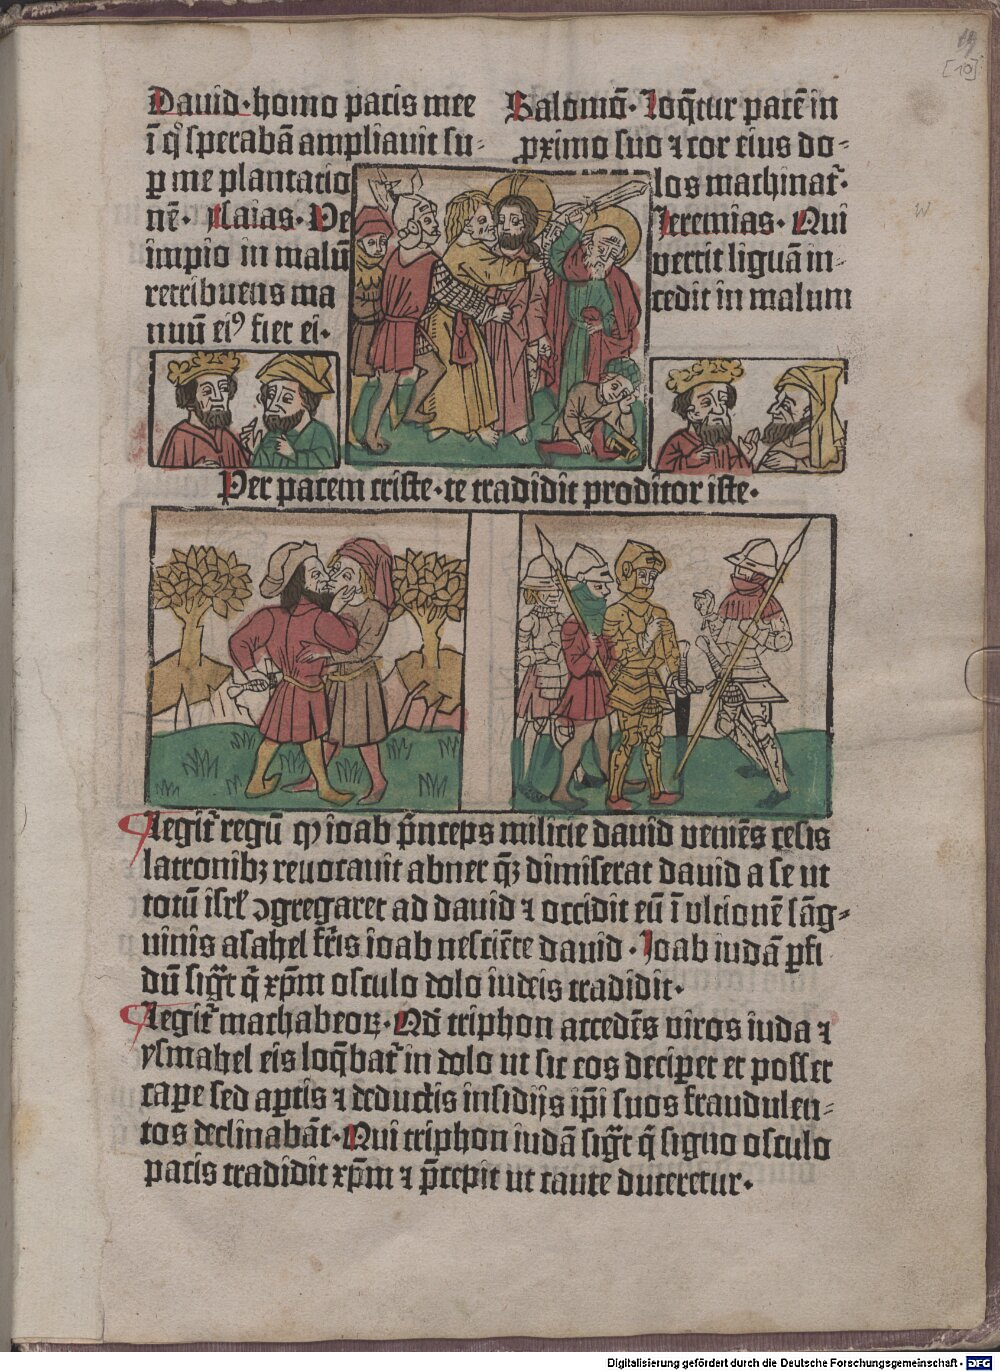 [10]
Dauid· homo pacis mee
ī qͦ speraba͞ ampliauit su-
p me plantatio
nē· Isaias· Ve
impio in malū
retribuens ma
nuū ei⁹ fiet ei·
Salomō· Loq̄tur pacē in
pximo suo ⁊ cor eius do-
los machinat̄·
Jeremias· Qui
vertit liguā in-
cedit in malum
w
Per pacem criste· te tradidit proditor iste·
Legit̄ regū ꝙ ioab p̄nceps milicie dauid veniēs cesis
latronibꝫ reuocauit abner q̄ꝫ dimiserat dauid a se ut
totū isrl̄ ꝯgregaret ad dauid ⁊ occidit eū ī vltionē sāg-
uinis asahel fr̄is ioab nesciēte dauid· Joab iudā pfi
dū sig̅t q̄ xp̄m osculo dolo iudeis tradidit·
Legit̄ machabeoꝝ· Qd̄ triphon accedēs viros iuda ⁊
ysrnahel eis loq̄bat̄ in dolo ut sic eos decipet et posset
cape sed aptis ⁊ deductis insidijs ip̄i suos fraudulen-
tos declinabāt· Qui triphon iudā sig̅t q̄ signo osculo
pacis tradidit xp̄m ⁊ p̄cepit ut caute duceretur·
Digitalisierung gefördert durch die Deutsche Forschungsgemeinschaft · DFG